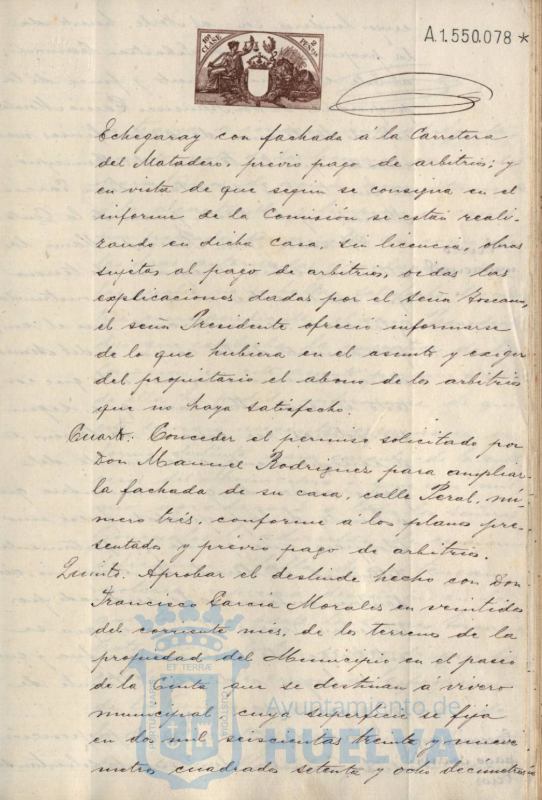 10ª CLASE 2 PESETAS
A.1.550.078 *
Echegaray con fachada á la Carretera
del Matadero, prévio pago de arbitrios; y
en vista de que segun se consigna en el
informe de la Comisión se estan reali-
zando en dicha casa, sin licencia, obras
sujetas al pago de arbitrios, oidas las
explicaciones dadas por el señor Toscano,
el señor Presidente ofreció informarse
de lo que hubiera en el asunto y exigir
del propietario el abono de los arbitrios
que no haya satisfecho.
Cuarto. Conceder el permiso solicitado por
Don Manuel Rodriguez para ampliar
la fachada de su casa, calle Peral, nú-
mero tres, conforme á los planos pre-
sentados y prévio pago de arbitrios.
Quinto. Aprobar el deslinde hecho con Don
Francisco García Morales en veintidos
del corriente mes, de los terrenos de la
propiedad del Municipio en el paseo
de la Cinta que se destinan á vivero
municipal cuya superficie se fija
en dos mil seiscientos treinta y nueve
metros cuadrados setenta y ocho decimetros
Ayuntamiento de
HUELVA